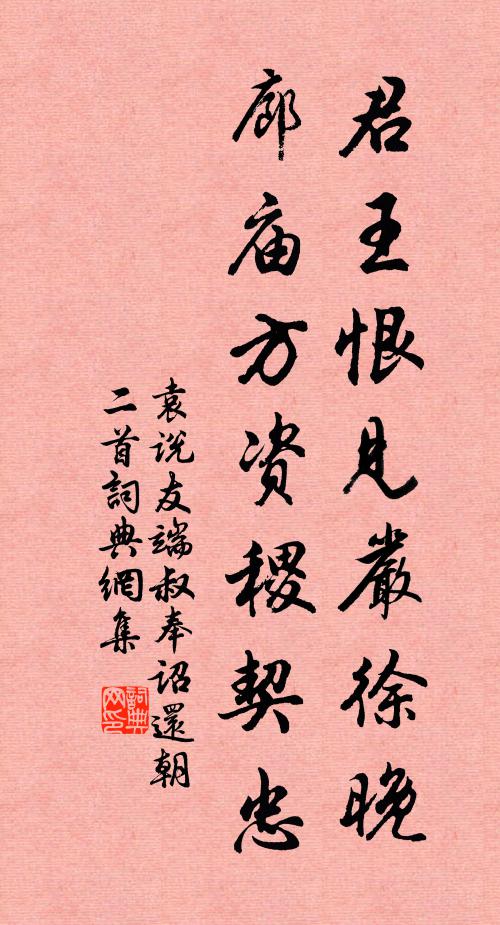 君王恨見嚴徐晚
廊庙方资稷契忠
袁说友端叔奉诏還朝
二首詞典網集
詞典网印